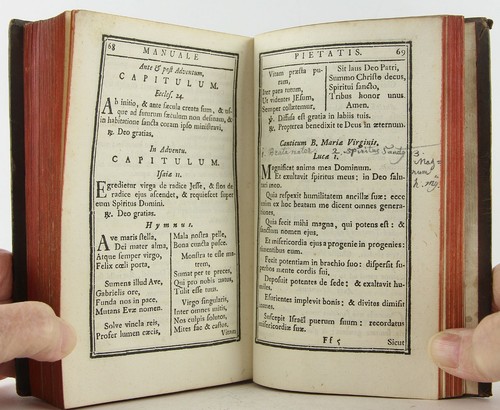 68 MANUALE
Ante & post Adventum,
CAPITULUM.
Eccles. 24.
Ab initio, & ante sæcula creata sum, & us-
que ad futurum sæculum non desinam, &
in habitatione sancta coram ipso ministravi,
℟. Deo gratias.
In Adventu.
CAPITULUM.
Isaiæ 11.
Egredietur virga de radice Jesse, & flos de
radice ejus ascendet, & requiescet super
eum Spiritus Domini.
℟. Deo gratias.
Hymnus.
Ave maris stella,
Dei mater alma,
Atque semper virgo,
Felix cœli porta,
Sumens illud Ave,
Gabrielis ore,
Funda nos in pace,
Mutans Evæ nomen.
Solve vincla reis,
Profer lumen cæcis,
Mala nostra pelle,
Bona cuncta posce.
Monstra te esse ma-
trem,
Sumat per te preces,
Qui pro nobis natus,
Tulit esse tuus.
Virgo singularis,
Inter omnes mitis,
Nos culpis solutos,
Mites fac & castos.
Vitam
PIETATIS. 69
Vitam præsta pu-
ram,
Iter para tutum,
Ut videntes JEsum,
Semper collætemur.
Sit laus Deo Patri,
Summo Christo decus,
Spiritui sancto,
Tribus honor unus.
Amen.
℣. Diffusa est gratia in labiis tuis.
℟. Propterea benedixit te Deus in æternum.
Canticum B. Mariæ Virginis.
1. Beata mater 2. Spiritus Sanctus 3.
Lucæ 1.
Magnificat anima mea Dominum.
Et exultavit spiritus meus; in Deo salu-
tari meo.
Quia respexit humilitatem ancillæ suæ: ecce
enim ex hoc beatam me dicent omnes genera-
tiones.
Quia fecit mihi magna, qui potens est: &
sanctum nomen ejus.
Et misericordia ejus a progenie in progenies:
timentibus eum.
Fecit potentiam in brachio suo: dispersit su-
perbos mente cordis sui.
Deposuit potentes de sede: & exaltavit hu-
miles.
Esurientes implevit bonis; & divites dimisit
inanes.
Suscepit Israël puerum suum: recordatus
misericordiæ suæ.
Ff 5 Sicut